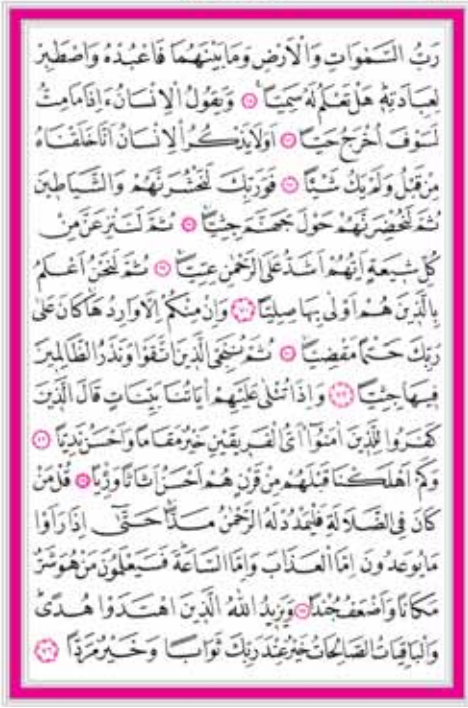 رَبُّ السَّمٰوَاتِ وَالْاَرْضِ وَمَا بَيْنَهُمَا فَاعْبُدْهُ وَاصْطَبِرْ
لِعِبَادَتِهٖ هَلْ تَعْلَمُ لَهُ سَمِيًّا ﴿٦٥﴾ وَيَقُولُ الْاِنْسَانُ ءَاِذَا مَامِتُّ
لَسَوْفَ اُخْرَجُ حَيًّا ﴿٦٦﴾ اَوَلَا يَذْكُرُ الْاِنْسَانُ اَنَّا خَلَقْنَاهُ
مِنْ قَبْلُ وَلَمْ يَكُ شَيْـًٔا ﴿٦٧﴾ فَوَرَبِّكَ لَنَحْشُرَنَّهُمْ وَالشَّيَاطٖينَ
ثُمَّ لَنُحْضِرَنَّهُمْ حَوْلَ جَهَنَّمَ جِثِيًّا ﴿٦٨﴾ ثُمَّ لَنَنْزِعَنَّ مِنْ
كُلِّ شٖيعَةٍ اَيُّهُمْ اَشَدُّ عَلَى الرَّحْمٰنِ عِتِيًّا ﴿٦٩﴾ ثُمَّ لَنَحْنُ اَعْلَمُ
بِالَّذٖينَ هُمْ اَوْلٰى بِهَا صِلِيًّا ﴿٧٠﴾ وَاِنْ مِنْكُمْ اِلَّا وَارِدُهَا كَانَ عَلٰى
رَبِّكَ حَتْمًا مَقْضِيًّا ﴿٧١﴾ ثُمَّ نُنَجِّى الَّذٖينَ اتَّقَوْا وَنَذَرُ الظَّالِمٖينَ
فٖيهَا جِثِيًّا ﴿٧٢﴾ وَاِذَا تُتْلٰى عَلَيْهِمْ اٰيَاتُنَا بَيِّنَاتٍ قَالَ الَّذٖينَ
كَفَرُوا لِلَّذٖينَ اٰمَنُوا اَىُّ الْفَرٖيقَيْنِ خَيْرٌ مَقَامًا وَاَحْسَنُ نَدِيًّا ﴿٧٣﴾
وَكَمْ اَهْلَكْنَا قَبْلَهُمْ مِنْ قَرْنٍ هُمْ اَحْسَنُ اَثَاثًا وَرِءْيًا ﴿٧٤﴾ قُلْ مَنْ
كَانَ فِى الضَّلَالَةِ فَلْيَمْدُدْ لَهُ الرَّحْمٰنُ مَدًّا حَتّٰى اِذَا رَاَوْا
مَا يُوعَدُونَ اِمَّا الْعَذَابَ وَاِمَّا السَّاعَةَ فَسَيَعْلَمُونَ مَنْ هُوَ شَرٌّ
مَكَانًا وَاَضْعَفُ جُنْدًا ﴿٧٥﴾ وَيَزٖيدُ اللّٰهُ الَّذٖينَ اهْتَدَوْا هُدًى
وَالْبَاقِيَاتُ الصَّالِحَاتُ خَيْرٌ عِنْدَ رَبِّكَ ثَوَابًا وَخَيْرٌ مَرَدًّا ﴿٧٦﴾